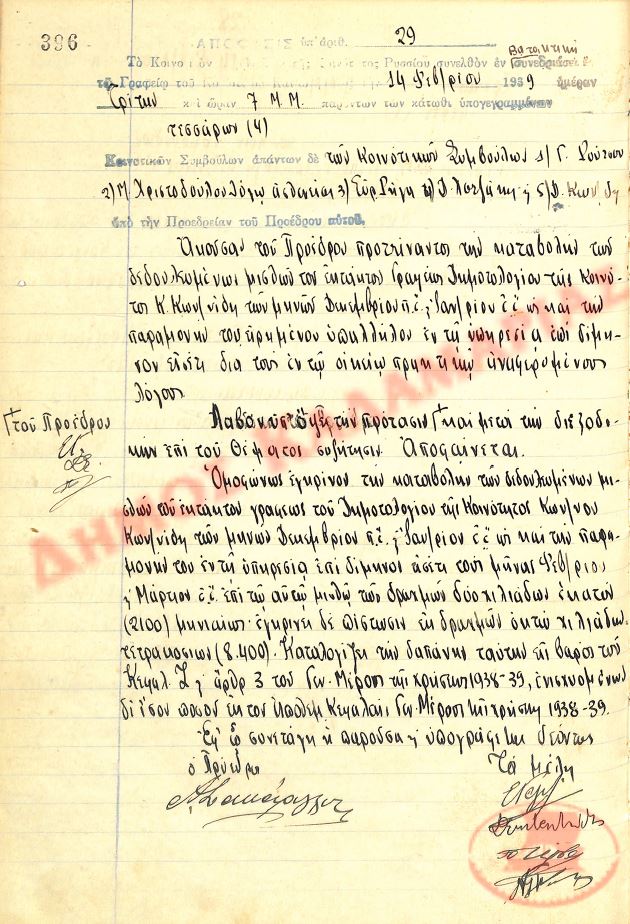 396
ΑΠΟΦΑΣΙΣ ὑπ' ἀριθ. 29
Τὸ Κοινοτικὸν Συμβούλιον τῆς Κοινότητος Ρυσσίου συνελθὸν ἐν συνεδριάσει
τῷ Γραφείῳ τοῦ 14 Φεβ/ρίου 1939 ἡμέραν
Τρίτην καὶ ὥραν 7 Μ.Μ. παρόντων τῶν κάτωθι ὑπογεγραμμένων
τεσσάρων (4)
Κοινοτικῶν Συμβούλων ἀπάντων δὲ τῶν Κοινοτικῶν Συμβούλων 1) Γ.
2) Μ. Χριστοδούλου λόγῳ ἀσθενείας 3) 4) 5)
ὑπὸ τὴν Προεδρείαν τοῦ Προέδρου αὐτοῦ.
Ἀκοῦσαν τοῦ Προέδρου προτείναντος τὴν καταβολὴν τῶν
δεδουλευμένων μισθῶν τοῦ ἐκτάκτου Γραφέως Δημοτολογίου τῆς Κοινό
τητος Κ. Κων/νίδη τῶν μηνῶν Δεκεμβρίου π.ἔ. καὶ Ἰαν/ρίου ἔ.ἔ. ὡς καὶ τὴν
παραμονὴν τοῦ εἰρημένου ὑπαλλήλου ἐν τῇ ὑπηρεσίᾳ ἐπὶ δίμη-
νον εἰσέτι διὰ τοὺς ἐν τῷ οἰκείῳ πρακτικῷ ἀναφερομένους
λόγους
Λαβὸν ὑπ' ὄψει τὴν πρότασιν Γ καὶ μετὰ τὴν διεξοδι
κὴν ἐπὶ τοῦ θέματος συζήτησιν. Ἀποφαίνεται.
Γ τοῦ Προέδρου
Ὁμοφώνως ἐγκρίνον τὴν καταβολὴν τῶν δεδουλευμένων μι
σθῶν τοῦ ἐκτάκτου γραφέως τοῦ Δημοτολογίου τῆς Κοινότητος Κων/νου
Κων/νίδη τῶν μηνῶν Δεκεμβρίου π.ἔ. καὶ Ἰαν/ρίου ἔ.ἔ. ὡς καὶ τὴν παρα-
μονήν του ἐν τῇ ὑπηρεσίᾳ ἐπὶ δίμηνον εἰσέτι τοὺς μῆνας Φεβ/ριον
καὶ Μάρτιον ἔ.ἔ. ἐπὶ τῷ αὐτῷ μισθῷ τῶν δραχμῶν δύο χιλιάδων ἑκατὸν
(2100) μηνιαίως· ἐγκρίνει δὲ πίστωσιν ἐκ δραχμῶν ὀκτὼ χιλιάδων
τετρακοσίων (8.400). Καταλογίζει τὴν δαπάνην ταύτην εἰς βάρος τοῦ
Κεφαλ. Ζ καὶ ἄρθρ 3 τοῦ Γεν. Μέρους τῆς χρήσεως 1938-39, ἐνισχυομένων
δι' ἴσου ποσοῦ ἐκ τοῦ Ἀποθεμ. Κεφαλαί. Γεν. Μέρους τῆς χρήσεως 1938-39.
Ἐφ' ᾧ συνετάγη ἡ παροῦσα καὶ ὑπογράφεται δεόντως
ὁ Πρόεδρος Τὰ μέλη
ΔΗΜΟΣ ΚΑΛΑΜΑΡΙΑΣ